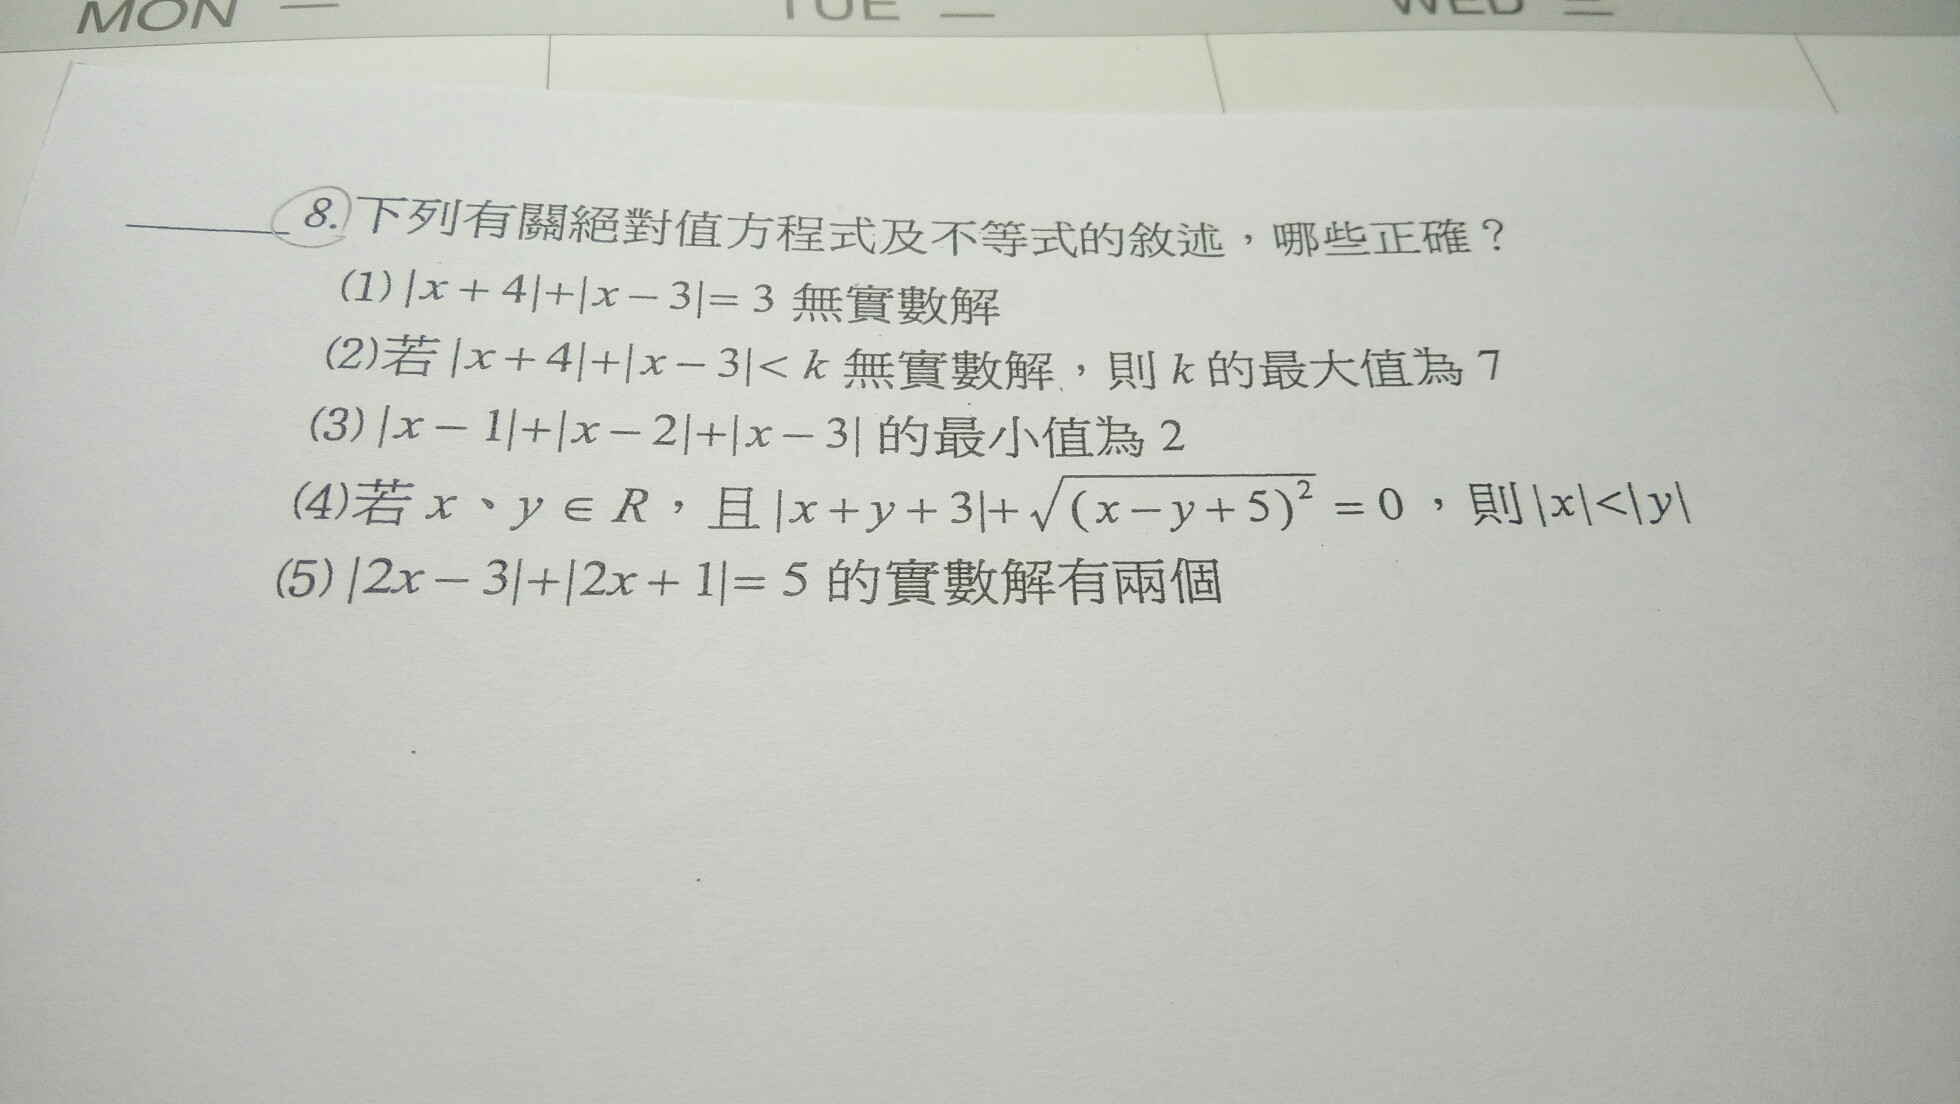 MON 一
TUE 二
WED 三
8.下列有關絕對值方程式及不等式的敘述，哪些正確？
(1)|x+4|+|x-3|=3 無實數解
(2)若|x+4|+|x-3|<k 無實數解，則 k 的最大值為 7
(3)|x-1|+|x-2|+|x-3| 的最小值為 2
(4)若 x、y∈R，且 |x+y+3|+√(x-y+5)² =0，則|x|<|y|
(5)|2x-3|+|2x+1|=5 的實數解有兩個